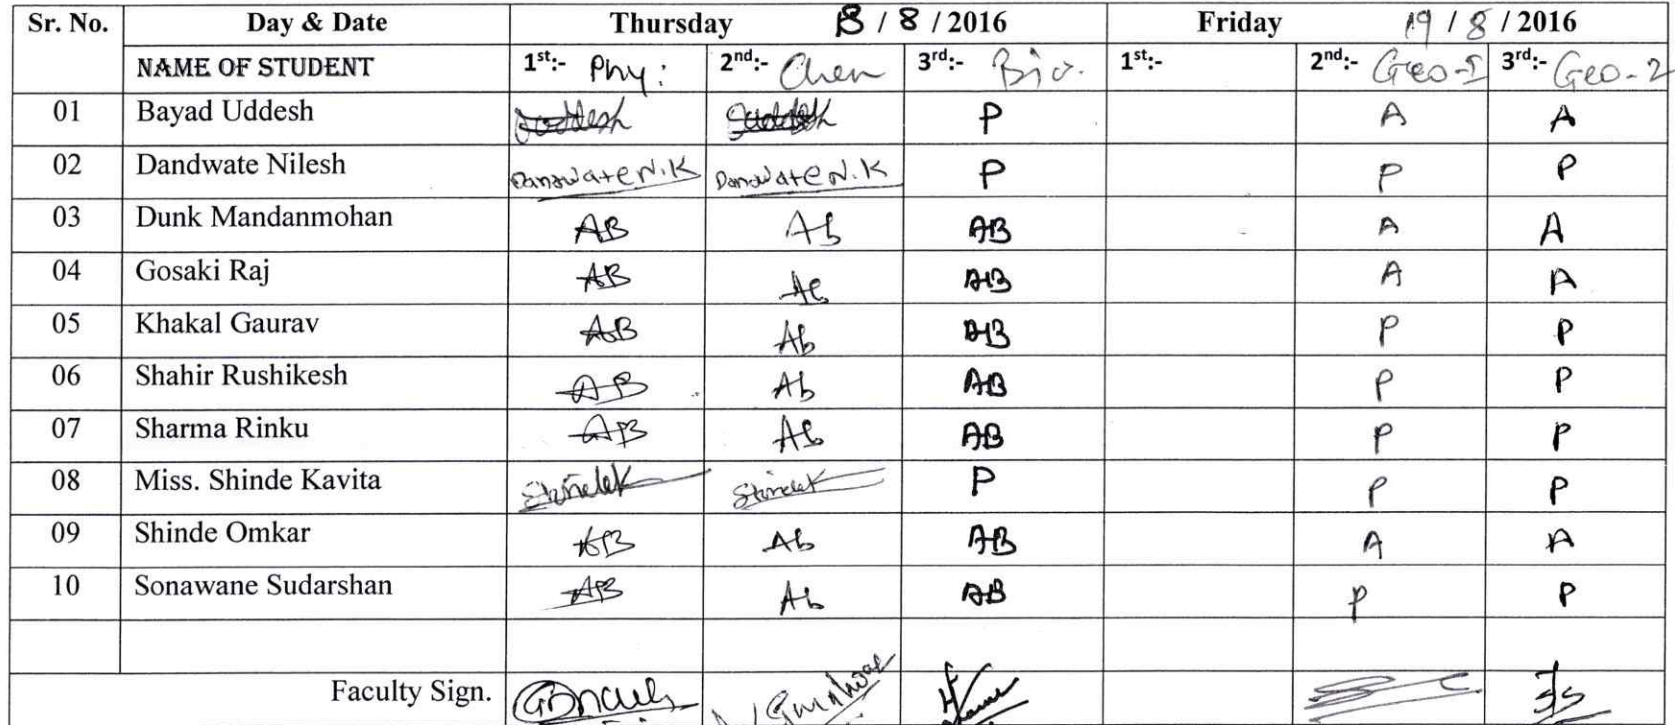 Sr. No. Day & Date Thursday 18 / 8 / 2016 Friday 19 / 8 / 2016
NAME OF STUDENT 1st:- Phy: 2nd:- Chem 3rd:- Bio. 1st:- 2nd:- Geo-1 3rd:- Geo-2
01 Bayad Uddesh Uddesh Uddesh P A A
02 Dandwate Nilesh Dandwate N.K Dandwate N.K P P P
03 Dunk Mandanmohan AB Ab AB A A
04 Gosaki Raj AB Ab AB A A
05 Khakal Gaurav AB Ab AB P P
06 Shahir Rushikesh AB Ab AB P P
07 Sharma Rinku AB Ab AB P P
08 Miss. Shinde Kavita ShindeK ShindeK P P P
09 Shinde Omkar AB Ab AB A A
10 Sonawane Sudarshan AB Ab AB P P
Faculty Sign.